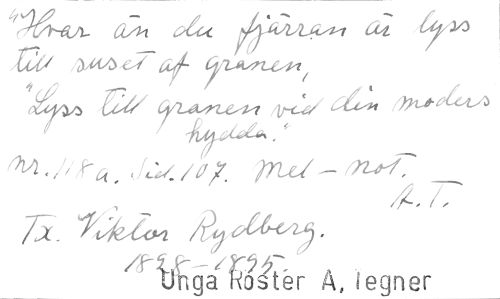 "Hvar än du fjärran är lyss
till suset af granen,
"Lyss till granen vid din moders
hydda."
nr. 118 a. Sid. 107. Mel-not.
A.T.
Tx. Viktor Rydberg.
1828-1895.
Unga Röster A, Tegner